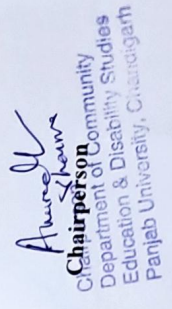 Anuradha
Sharma
Chairperson
Chairperson
Department of Community
Education & Disability Studies
Panjab University, Chandigarh